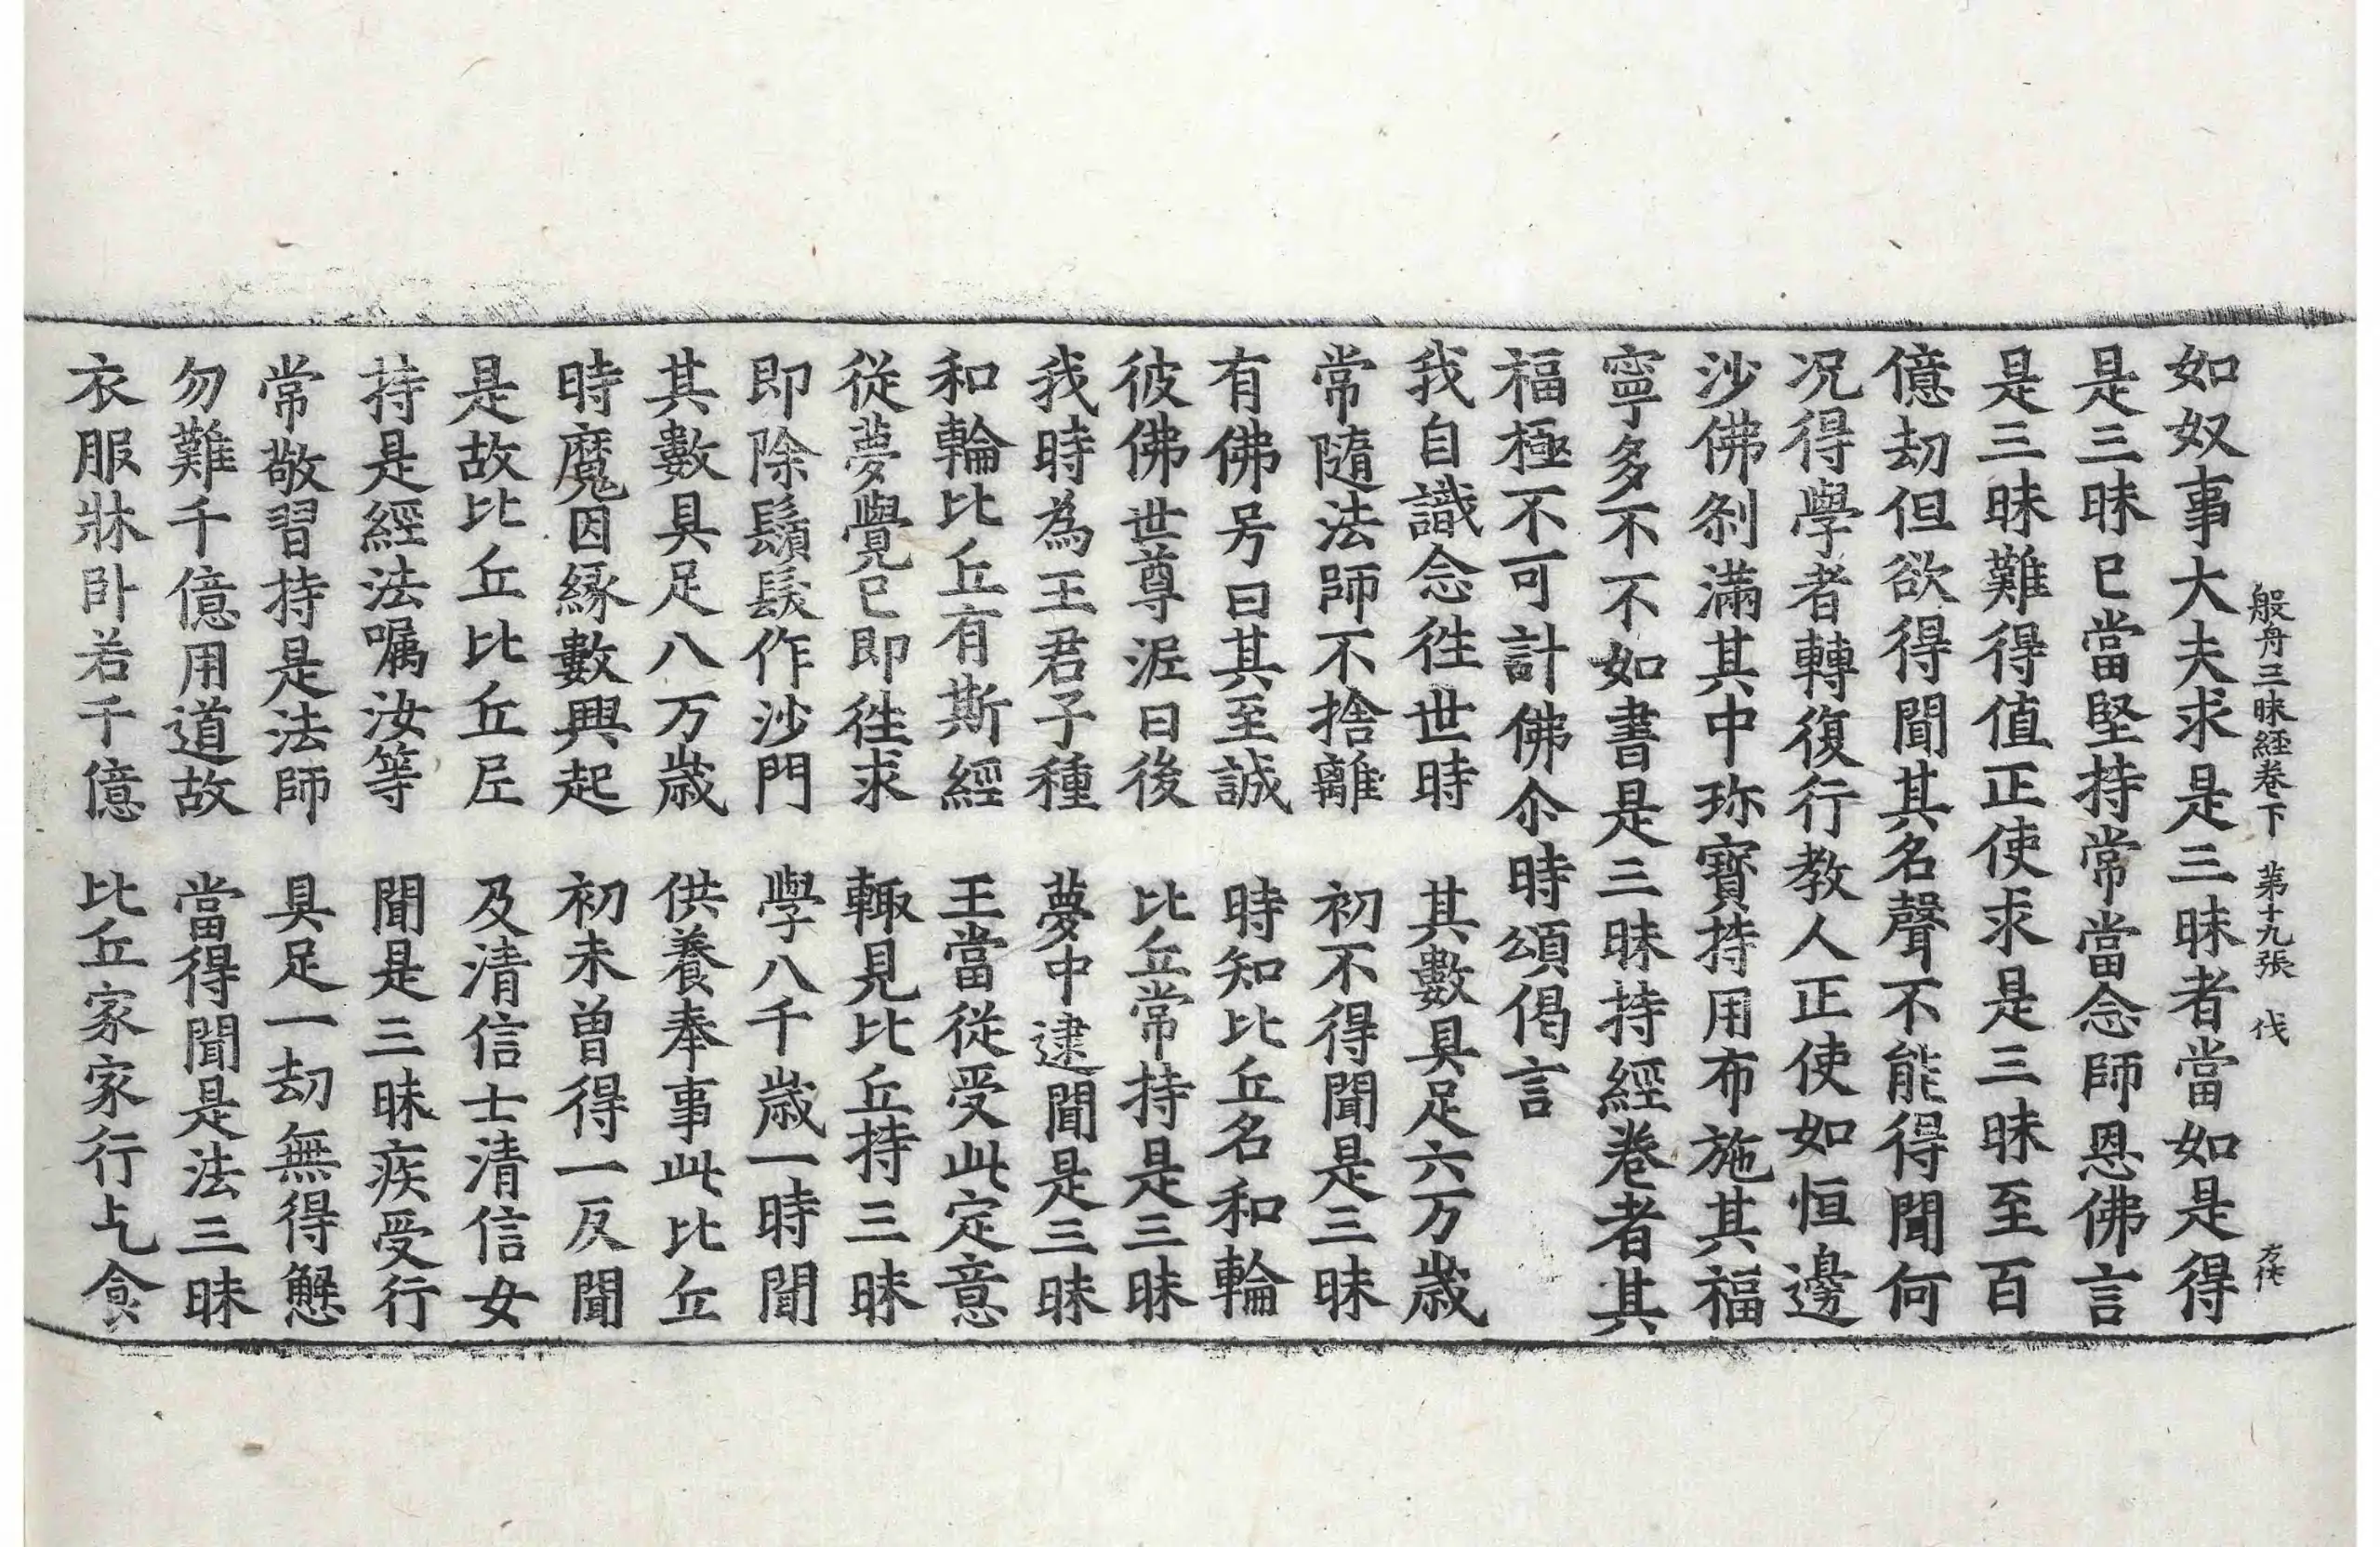 般舟三昧経卷下　第十九張　伐
如奴事大夫求是三昧者當如是得
是三昧已當堅持常當念師恩佛言
是三昧難得值正使求是三昧至百
億劫但欲得聞其名聲不能得聞何
况得學者轉復行教人正使如恒邊
沙佛剎滿其中珎寶持用布施其福
寧多不不如書是三昧持經卷者其
福極不可計佛尒時頌偈言
我自識念徃世時　其數具足六万歳
常隨法師不捨離　初不得聞是三昧
有佛号曰其至誠　時知比丘名和輪
彼佛世尊泥曰後　比丘常持是三昧
我時為王君子種　夢中逮聞是三昧
和輪比丘有斯經　王當從受此定意
從夢覺已即徃求　輙見比丘持三昧
即除鬚髮作沙門　學八千歳一時聞
其數具足八万歳　供養奉事此比丘
時魔因緣數興起　初未曾得一反聞
是故比丘比丘尼　及清信士清信女
持是經法囑汝等　聞是三昧疾受行
常敬習持是法師　具足一劫無得懈
勿難千億用道故　當得聞是法三昧
衣服牀卧若千億　比丘家家行乞食